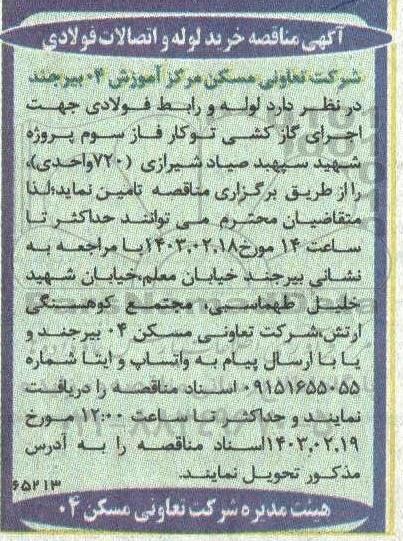 آگهی مناقصه خرید لوله و اتصالات فولادی
شرکت تعاونی مسکن مرکز آموزش ۰۴ بیرجند
در نظر دارد لوله و رابط فولادی جهت
اجرای گاز کشی توکار فاز سوم پروژه
شهید سپهبد صیاد شیرازی (۷۲۰واحدی)،
را از طریق برگزاری مناقصه تامین نماید؛لذا
متقاضیان محترم می توانند حداکثر تا
ساعت ۱۴ مورخ۱۴۰۳,۰۲,۱۸با مراجعه به
نشانی بیرجند خیابان معلم،خیابان شهید
خلیل طهماسبی، مجتمع کوهسنگی
ارتش،شرکت تعاونی مسکن ۰۴ بیرجند و
یا با ارسال پیام به واتساپ و ایتا شماره
۰۹۱۵۱۶۵۵۰۵۵ اسناد مناقصه را دریافت
نمایند و حداکثر تا ساعت ۱۲:۰۰ مورخ
۱۴۰۳,۰۲,۱۹اسناد مناقصه را به آدرس
مذکور تحویل نمایند.
۶۵۲۱۳
هیئت مدیره شرکت تعاونی مسکن ۰۴